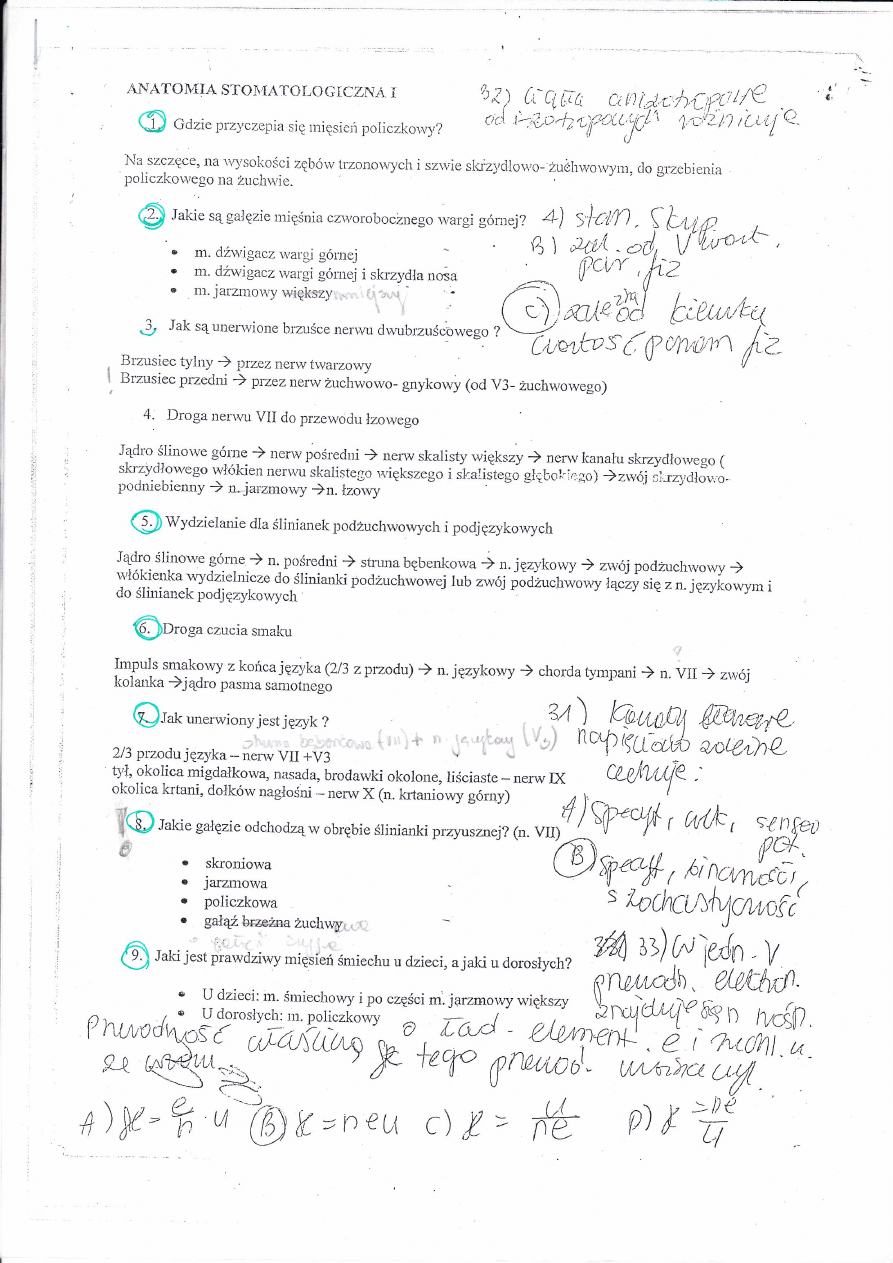 ANATOMIA STOMATOLOGICZNA I
32) Ciała anizotropowe
od izotropowych różnicuje
1. Gdzie przyczepia się mięsień policzkowy?
Na szczęce, na wysokości zębów trzonowych i szwie skrzydlowo- żuchwowym, do grzebienia
policzkowego na żuchwie.
2. Jakie są gałęzie mięśnia czworobocznego wargi górnej?
A) stan. skup
B) zal. od wart.
par. fiz
• m. dźwigacz wargi górnej
• m. dźwigacz wargi górnej i skrzydła nosa
• m. jarzmowy większy mniejszy
C) zależna od kierunku
wartość param fiz
3. Jak są unerwione brzuśce nerwu dwubrzuścowego ?
Brzusiec tylny → przez nerw twarzowy
Brzusiec przedni → przez nerw żuchwowo- gnykowy (od V3- żuchwowego)
4. Droga nerwu VII do przewodu łzowego
Jądro ślinowe górne → nerw pośredni → nerw skalisty większy → nerw kanału skrzydłowego (
skrzydłowego włókien nerwu skalistego większego i skalistego głębokiego) →zwój skrzydłowo-
podniebienny → n. jarzmowy →n. łzowy
5. Wydzielanie dla ślinianek podżuchwowych i podjęzykowych
Jądro ślinowe górne → n. pośredni → struna bębenkowa → n. językowy → zwój podżuchwowy →
włókienka wydzielnicze do ślinianki podżuchwowej lub zwój podżuchwowy łączy się z n. językowym i
do ślinianek podjęzykowych
6. Droga czucia smaku
?
Impuls smakowy z końca języka (2/3 z przodu) → n. językowy → chorda tympani → n. VII → zwój
kolanka →jądro pasma samotnego
7. Jak unerwiony jest język ?
struna bębenkowa (VII) + n językowy (V3)
2/3 przodu języka – nerw VII +V3
tył, okolica migdałkowa, nasada, brodawki okolone, liściaste – nerw IX
okolica krtani, dołków nagłośni – nerw X (n. krtaniowy górny)
31) Kanały
napięciowo zależne
cechuje :
8. Jakie gałęzie odchodzą w obrębie ślinianki przyusznej? (n. VII)
A) specyf, akt, sensor
pot.
B) specyf, binarność,
stochastyczność
• skroniowa
• jarzmowa
• policzkowa
• gałąź brzeżna żuchwy
9. Jaki jest prawdziwy mięsień śmiechu u dzieci, a jaki u dorosłych?
33) W jedn. V
przewodn. elektron.
znajduje się n nośn.
• U dzieci: m. śmiechowy i po części m. jarzmowy większy
• U dorosłych: m. policzkowy
o ład. element. e i ruchl. u.
Przewodność właściwą γ tego przewod. wyraża
ze wzem.
A) γ = e/n · u B) γ = neu C) γ = u/ne D) γ = ne/u